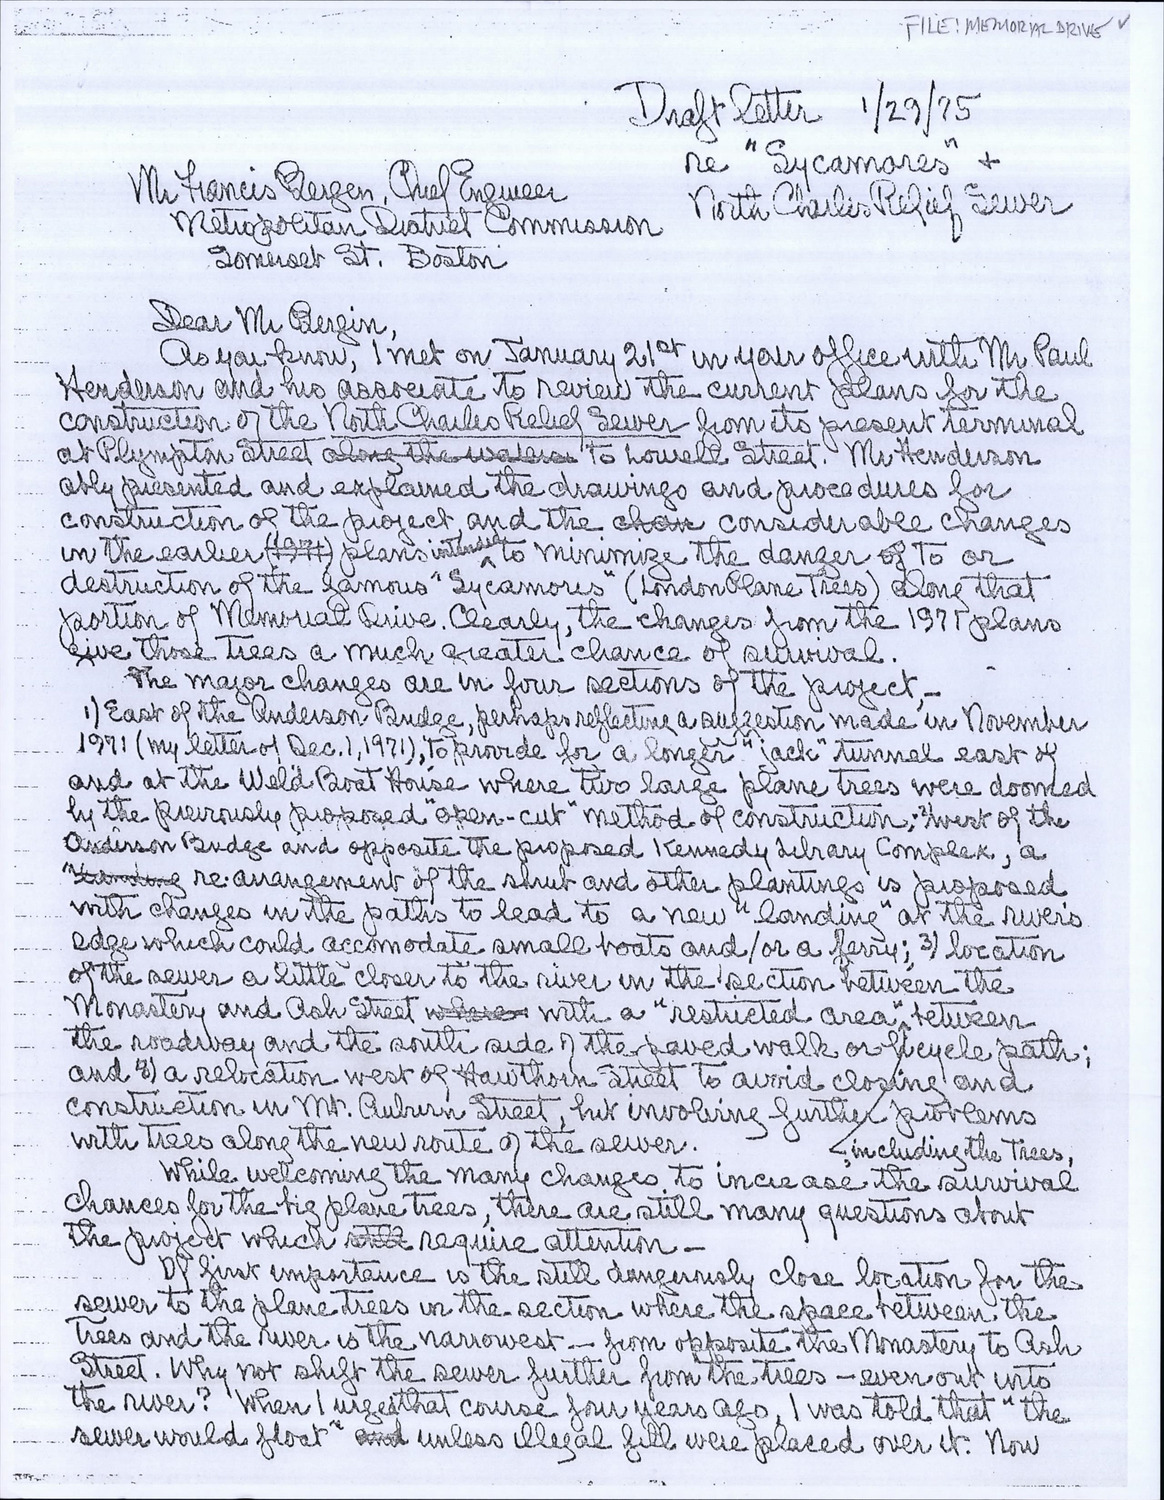 FILE: MEMORIAL DRIVE ✓
Draft letter 1/29/75
re "Sycamores" +
North Charles Relief Sewer
Mr Francis Bergen, Chief Engineer
Metropolitan District Commission
Somerset St. Boston
Dear Mr Bergin,
As you know, I met on January 21st in your office with Mr Paul
Henderson and his associate to review the current plans for the
construction of the North Charles Relief Sewer from its present terminal
at Plympton Street along the to Lowell Street. Mr Henderson
ably presented and explained the drawings and procedures for
construction of the project, and the considerable changes
in the earlier (1971) plans intended to minimize the danger of to or
destruction of the famous "Sycamores" (London Plane Trees) along that
portion of Memorial Drive. Clearly, the changes from the 1971 plans
give those trees a much greater chance of survival.
The major changes are in four sections of the project, —
1) East of the Anderson Bridge, perhaps reflecting a suggestion made in November
1971 (my letter of Dec. 1, 1971), to provide for a longer "jack" tunnel east of
and at the Weld Boat House where two large plane trees were doomed
by the previously proposed "open-cut" method of construction; 2) west of the
Anderson Bridge and opposite the proposed Kennedy Library Complex, a
"landing re-arrangement of the shrub and other plantings is proposed
with changes in the paths to lead to a new "landing" at the river's
edge which could accomodate small boats and/or a ferry; 3) location
of the sewer a little closer to the river in the section between the
Monastery and Ash Street where with a "restricted area", between
the roadway and the south side of the paved walk or bicycle path;
and 3) a relocation west of Hawthorn Street to avoid closing and
construction in Mt. Auburn Street, but involving further problems
with trees along the new route of the sewer.
including the trees,
While welcoming the many changes to increase the survival
chances for the big plane trees, there are still many questions about
the project which still require attention —
Of first importance is the still dangerously close location for the
sewer to the plane trees in the section where the space between the
trees and the river is the narrowest — from opposite the Monastery to Ash
Street. Why not shift the sewer further from the trees — even out into
the river? When I urged that course four years ago, I was told that "the
sewer would float" and unless illegal fill were placed over it. Now